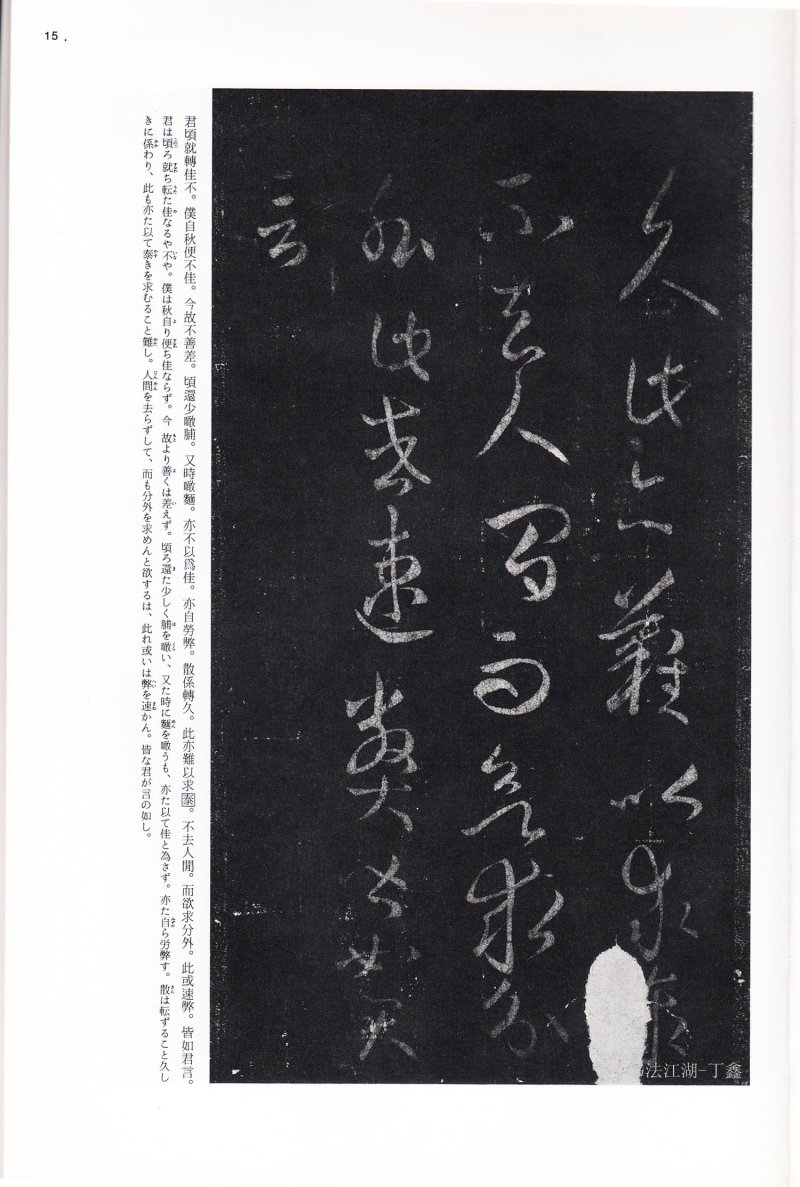 15.
久此亦難以求泰
不去人間而欲求分
外此或速弊皆如君
言
法江湖-丁鑫
君頃就轉佳不。僕自秋便不佳。今故不善差。頃還少噉脯。又時噉麵。亦不以爲佳。亦自勞弊。散係轉久。此亦難以求泰。不去人閒。而欲求分外。此或速弊。皆如君言。
君は頃ろ就ち転た佳なるや不や。僕は秋自り便ち佳ならず。今 故より善くは差えず。頃ろ還た少しく脯を噉い、又た時に麵を噉うも、亦た以て佳と為さず。亦た自ら労弊す。散は転ずること久し
きに係わり、此も亦た以て泰きを求むること難し。人間を去らずして、而も分外を求めんと欲するは、此れ或いは弊を速かん。皆な君が言の如し。